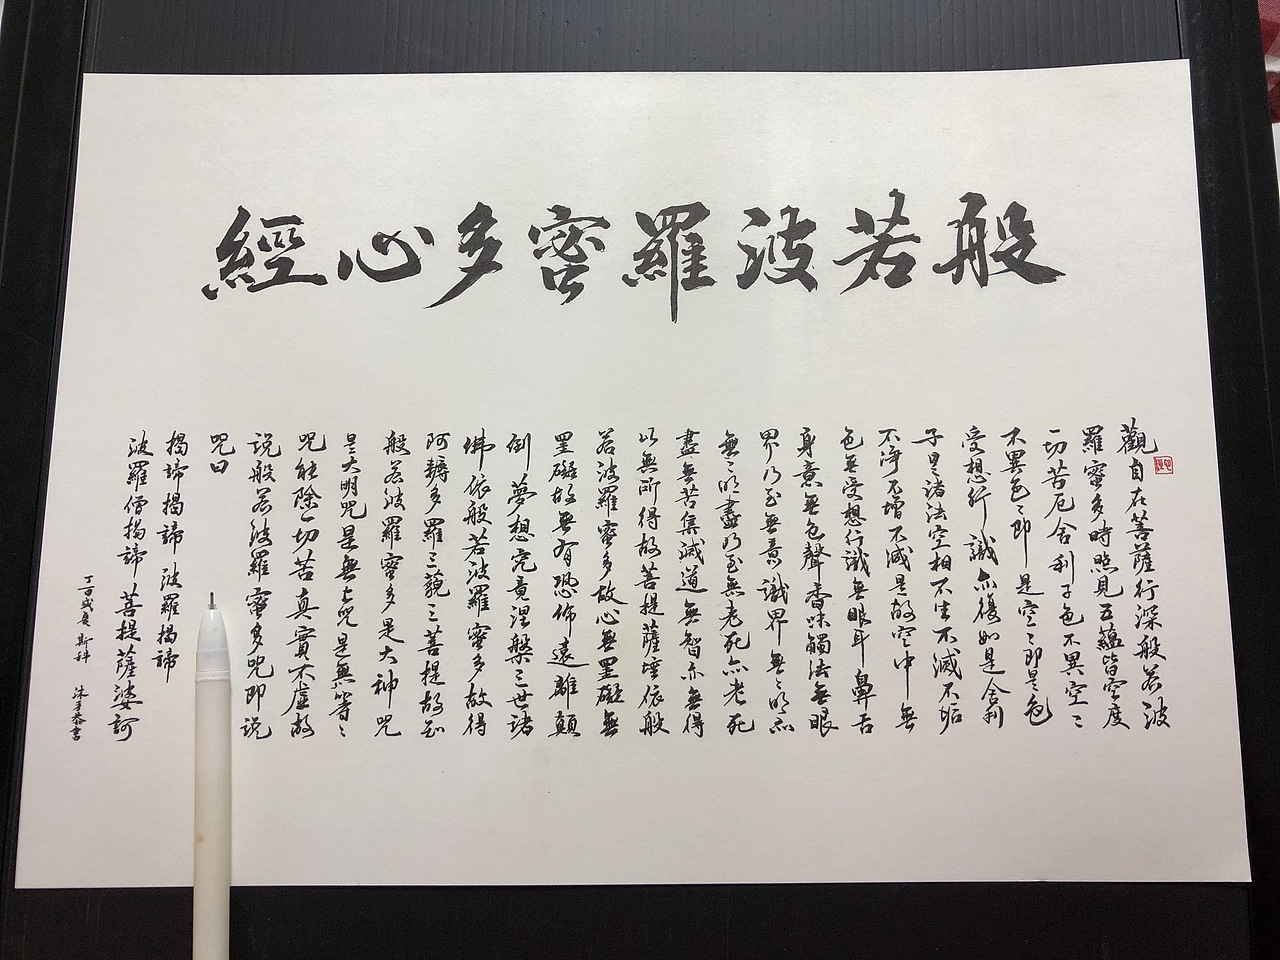 般若波羅蜜多心經
觀自在菩薩行深般若波
羅蜜多時照見五蘊皆空度
一切苦厄舍利子色不異空〻
不異色〻即是空〻即是色
受想行識亦復如是舍利
子是諸法空相不生不滅不垢
不淨不增不減是故空中無
色無受想行識無眼耳鼻舌
身意無色聲香味觸法無眼
界乃至無意識界無〻明亦
無〻明盡乃至無老死亦老死
盡無苦集滅道無智亦無得
以無所得故菩提薩埵依般
若波羅蜜多故心無罣礙無
罣礙故無有恐怖遠離顛
倒夢想究竟涅槃三世諸
佛依般若波羅蜜多故得
阿耨多羅三藐三菩提故知
般若波羅蜜多是大神咒
是大明咒是無上咒是無等〻
咒能除一切苦真實不虛故
說般若波羅蜜多咒即說
咒曰
揭諦揭諦 波羅揭諦
波羅僧揭諦 菩提薩婆訶
斯科 沐手恭書